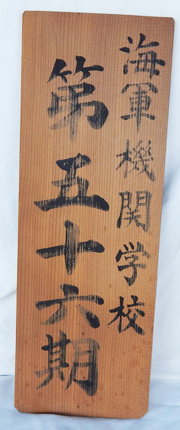 海軍機関学校
第五十六期